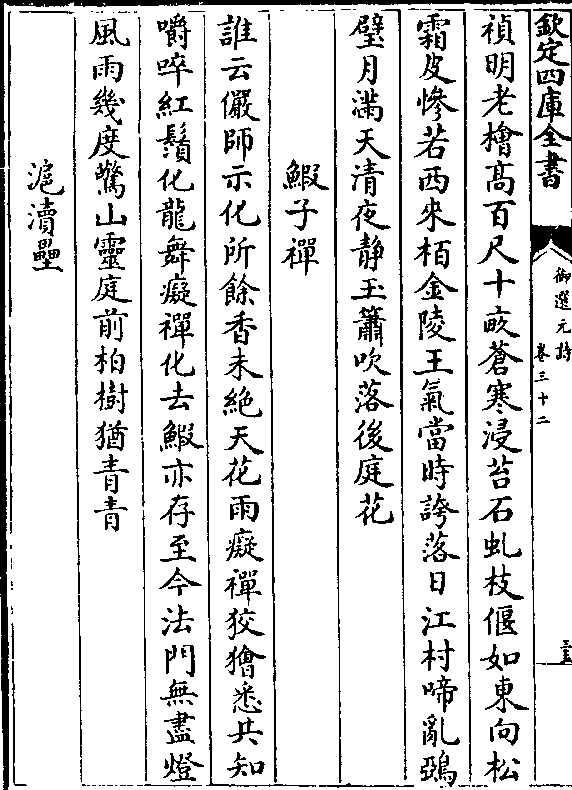 欽定四庫全書
御選元詩
卷三十二
禎明老檜髙百尺十畝蒼寒浸苔石虬枝偃如東向松
霜皮慘若西來栢金陵王氣當時誇落日江村啼亂鵶
璧月滿天清夜静玉簫吹落後庭花
鰕子禪
誰云儼師示化所餘香未絶天花雨癡禪狡獪悉共知
嚼啐紅鬚化龍舞癡禪化去鰕亦存至今法門無盡燈
風雨幾度驚山靈庭前柏樹猶青青
滬瀆壘